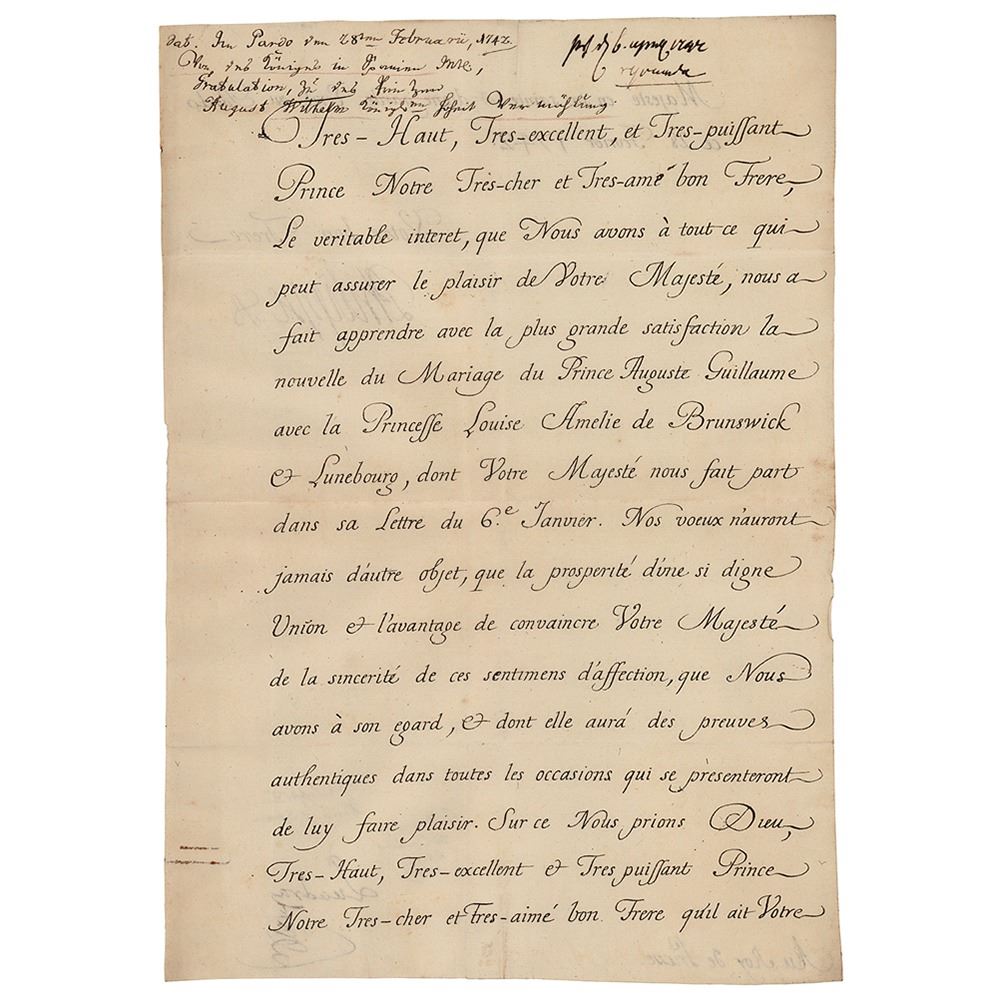 dat. Im Pardo den 28ten Februarii, 1742.
Von des Königes in Spanien
Gratulation, zu des Printzen
August Wilhelm Königl. Hoheit Vermählung.
Tres-Haut, Tres-excellent, et Tres-puissant
Prince Notre Tres-cher et Tres-amé bon Frere,
Le veritable interet, que Nous avons à tout ce qui
peut assurer le plaisir de Votre Majesté, nous a
fait apprendre avec la plus grande satisfaction la
nouvelle du Mariage du Prince Auguste Guillaume
avec la Princesse Louise Amelie de Brunswick
& Lunebourg, dont Votre Majesté nous fait part
dans sa Lettre du 6.e Janvier. Nos voeux n'auront
jamais d'autre objet, que la prosperité d'une si digne
Union & l'avantage de convaincre Votre Majesté
de la sincerité de ces sentimens d'affection, que Nous
avons à son egard, & dont elle aurá des preuves
authentiques dans toutes les occasions qui se presenteront
de luy faire plaisir. Sur ce Nous prions Dieu,
Tres-Haut, Tres-excellent & Tres puissant Prince
Notre Tres-cher et Tres-aimé bon Frere qu'il ait Votre